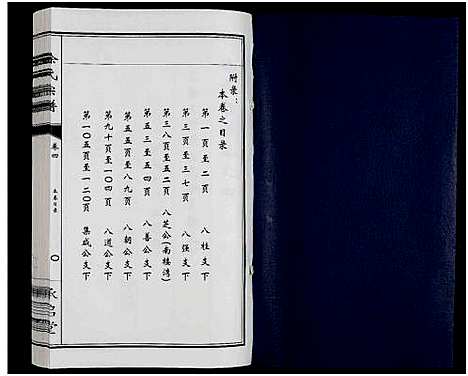 附录：
本卷之目录
第一页至二页 八柱支下
第三页至三七页 八强支下
第三八页至五二页 八芝公(南楼湾)
第五三至五四页 八善公支下
第五五页至八九页 八朝公支下
第九十页至一〇四页 八道公支下
第一〇五页至一二〇页 集成公支下
余氏宗谱
卷四
本卷目录
〇
承启堂